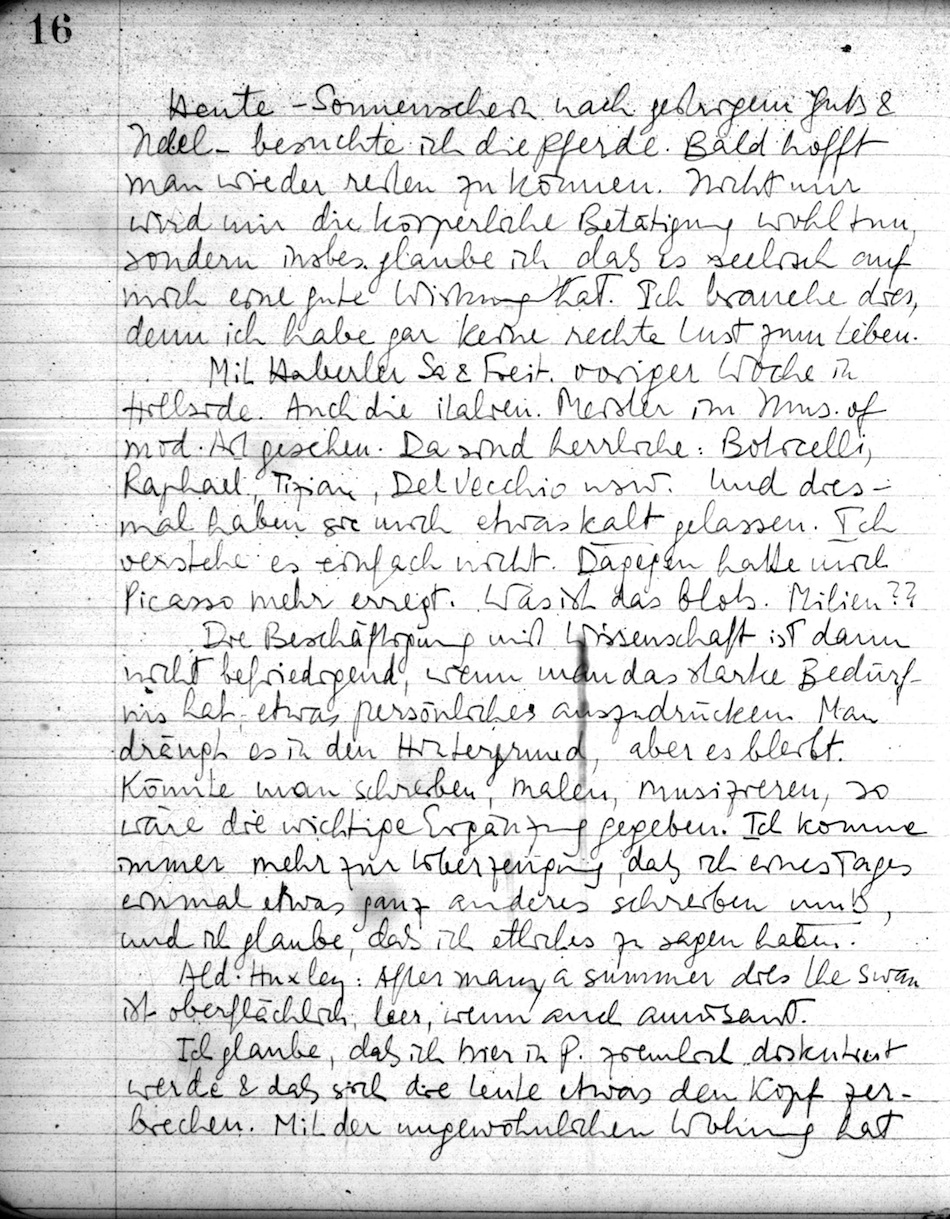 16
Heute – Sonnenschein nach gestrigem Guß &
Nebel – besuchte ich die Pferde. Bald hofft
man wieder reiten zu können. Nicht nur
wird mir die körperliche Betätigung wohl tun,
sondern insbes. glaube ich daß es seelisch auf
mich eine gute Wirkung hat. Ich brauche dies,
denn ich habe gar keine rechte Lust zum Leben.
Mit Haberler Sa & Freit. voriger Woche in
Hillside. Auch die italien. Meister im Mus. of
mod. Art gesehen. Da sind herrliche: Boticelli,
Raphael, Tizian, Del Vecchio usw. Und dies-
mal haben sie mich etwas kalt gelassen. Ich
verstehe es einfach nicht. Dagegen hatte mich
Picasso mehr erregt. Was ist das bloß. Milieu??
Die Beschäftigung mit Wissenschaft ist dann
nicht befriedigend, wenn man das starke Bedürf-
nis hat, etwas persönliches auszudrücken. Man
drängt es in den Hintergrund, aber es bleibt.
Könnte man schreiben, malen, musizieren, so
wäre die wichtige Ergänzung gegeben. Ich komme
immer mehr zur Überzeugung, daß ich eines Tages
einmal etwas ganz anderes schreiben muß,
und ich glaube, daß ich etliches zu sagen haben.
Ald. Huxley: After many a summer dies the swan
ist oberflächlich, leer, wenn auch amüsant.
Ich glaube, daß ich hier in P. ziemlich diskutiert
werde & daß sich die Leute etwas den Kopf zer-
brechen. Mit der ungewöhnlichen Wohnung hat